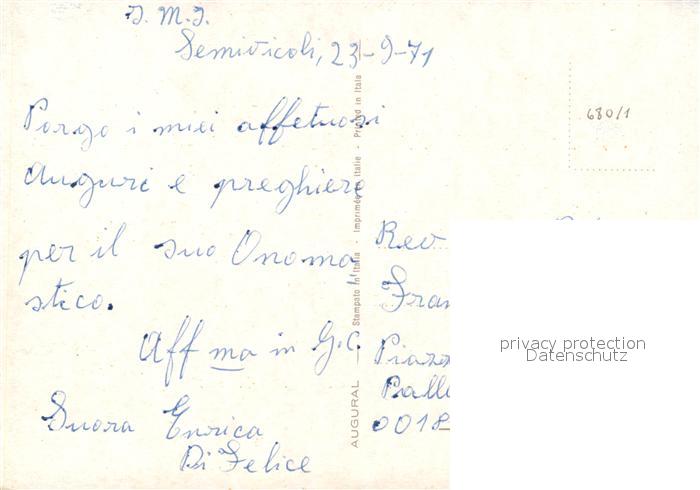 J. M. J.
Semivicoli, 23-9-71
Porgo i miei affettuosi
auguri e preghiere
per il suo Onoma
stico.
Aff ma in G.C.
Suora Enrica
Di Felice
AUGURAL - Stampato in Italia - Imprimé en Italie - Printed in Italy
680/1
Rev
Fran
Piazz
Pall
0018
privacy protection
Datenschutz